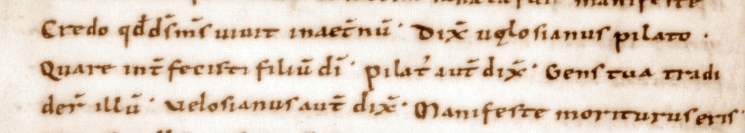 Credo qd̄ d̄s m̄s uiuit in aet̄nū · Dix̄ uelosianus pilato ·
Quare int̄fecisti filiū dī · pilat᷒ aut̄ dix̄ · Gens tua tradi
der̄ illū · Velosianus aut̄ dix̄ · Manifeste moriturus eris